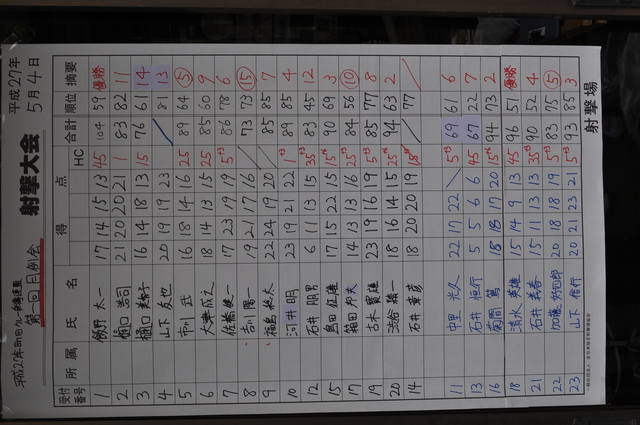 第一回 月例会
射撃大会
平成27年
5月4日
受付番号 所属 氏名 得点 HC 合計 順位 摘要
1 飯野 太一 17 14 15 13 45 104 59 優勝
2 樋口 浩司 21 20 20 21 1 83 82 11
3 樋口 16 14 18 13 15 76 61 14
4 山下 友也 20 19 19 23 81 13
5 市川 武 16 18 14 16 25 89 64 ⑤
6 大津 成之 18 14 13 15 25 85 60 9
7 佐橋 健一 17 23 19 19 86 78 6
8 古川 陽一 19 21 17 16 73 73 ⑮
9 福島 裕太 22 24 19 20 85 85 7
10 河井 明 23 19 21 22 89 85 4
12 石井 朋男 6 11 13 15 83 45 12
15 島田 征雄 17 15 22 15 90 69 3
17 箱田 邦夫 14 13 13 16 84 56 ⑩
19 古木 實雄 23 19 16 19 85 77 8
20 渋谷 雄一 18 16 14 15 94 63 2
14 石井 重彦 18 20 20 19 77
11 中里 光久 22 17 22 69 61 6
13 石井 恒行 5 5 6 6 45 67 22 7
16 菊岡 篤 18 18 17 20 94 73 2
18 清水 英雄 15 14 9 13 45 96 51 優勝
21 石井 義春 15 11 13 13 90 52 4
22 加藤 好四郎 20 18 18 19 83 75 ⑤
23 山下 信行 20 21 23 21 93 85 3
射撃場